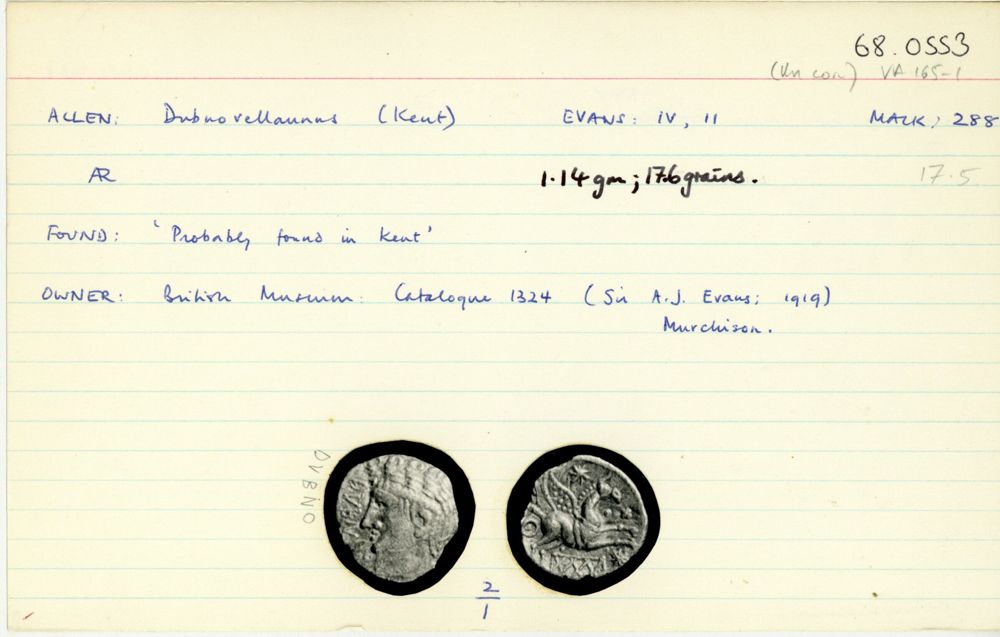 68.0553
(Un coin) VA 165-1
ALLEN: Dubnovellaunus (Kent) EVANS: IV, 11 MACK: 288
AR 1.14 gm; 17.6 grains. 17.5
FOUND: 'Probably found in Kent'
OWNER: British Museum: Catalogue 1324 (Sir A.J. Evans; 1919)
Murchison.
DVBNO
2
1